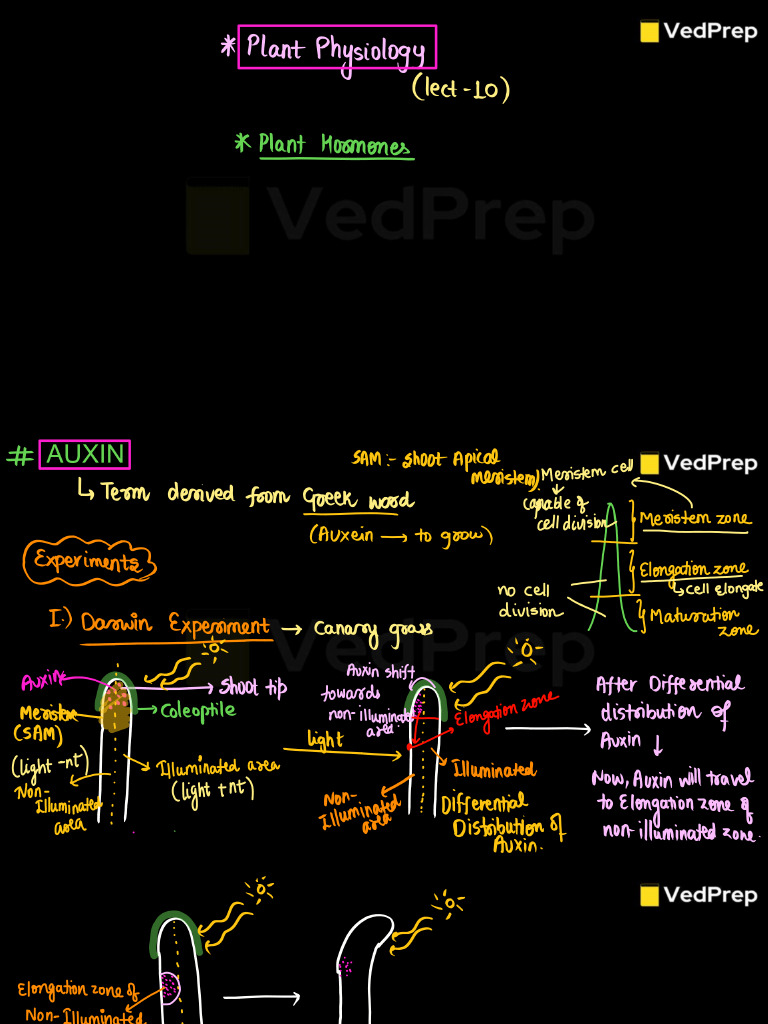 * Plant Physiology
VedPrep
(lect-10)
* Plant Hormones
VedPrep
# AUXIN
↳ Term derived from Greek word
(Auxein → to grow)
SAM :- Shoot Apical
meristem)
Meristem cell
capable of
cell division
VedPrep
Meristem zone
Elongation zone
↳ cell elongate
Maturation
zone
no cell
division
Experiments
I.) Darwin Experiment → Canary grass
VedPrep
Auxin
Shoot tip
Meristem
(SAM)
Coleoptile
(light -nt)
Non-
Illuminated
area
Illuminated area
(light +nt)
light
Auxin shift
towards
non-illuminated
area
Elongation zone
Illuminated
Non-
Illuminated
area
Differential
Distribution of
Auxin.
After Differential
distribution of
Auxin ↓
Now, Auxin will travel
to Elongation zone of
non illuminated zone.
VedPrep
Elongation zone of
Non-Illuminated